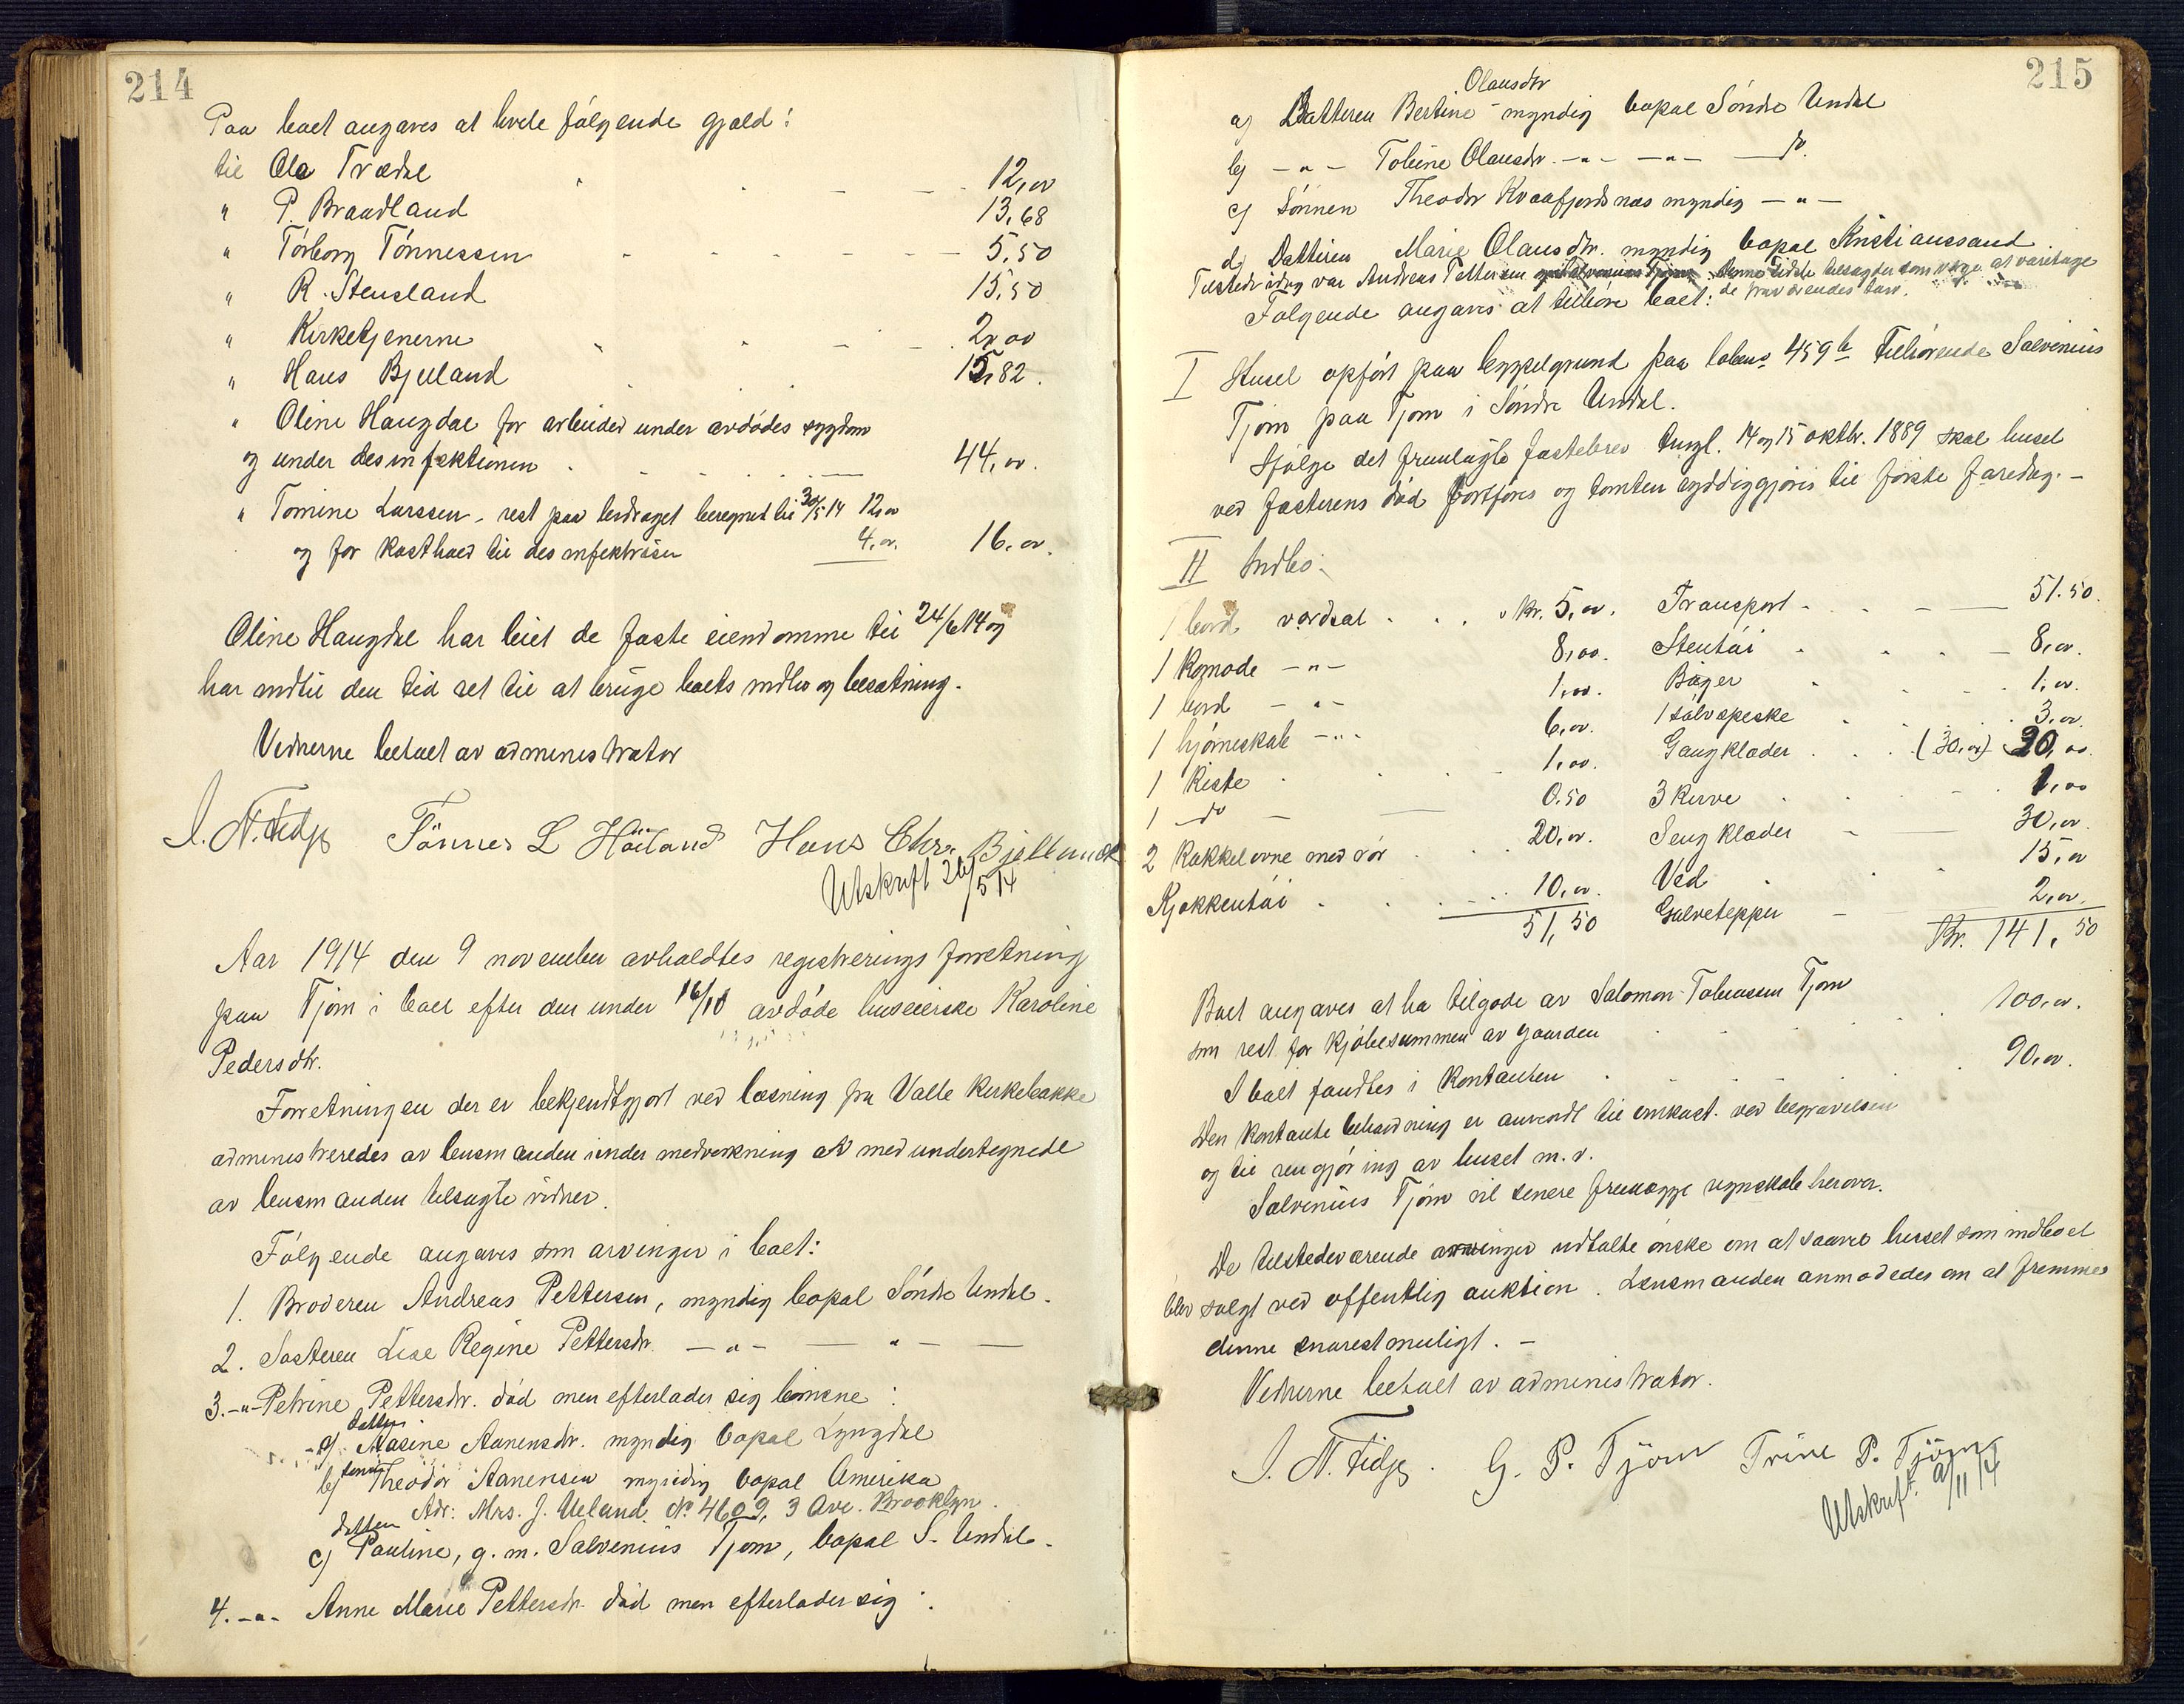 214
Paa boet angaves at hvile følgende gjæld:
til Ola Trædal 12,00
" P. Braadland 13,68
" Torborg Tönnessen 5,50
" R. Stensland 15,50
" Kirketjenerne 2,00
" Hans Bjelland 15,82.
" Oline Haugdal for arbeider under avdödes sygdom
og under desinfektionen 44,00.
" Tomine Larssen - rest paa levdraget beregnet til 30/5 14 12,00
og for kosthold til desinfektriser 4,00. 16,00.
Oline Haugdal har leiet de faste eiendomme til 24/6 14 og
har indtil den tid ret til at bruge boets indbo og besætning.
Vidnerne betalt av administrator
J. N. Fidje Tönnes L Höiland Hans Chr. Bjelland
Utskrift 26/5 14
Aar 1914 den 9 november avholdtes registrerings forretning
paa Tjöm i boet efter den under 16/10 avdöde huseierske Karoline
Pedersdtr.
Forretningen der er bekjendtgjort ved læsning fra Valle kirkebakke
administreredes av lensmanden under medvirkning av medundertegnede
av lensmanden tilsagte vidner.
Følgende angaves som arvinger i boet:
1. Broderen Andreas Pettersen, myndig bopæl Söndre Undal.
2. Søsteren Lise Regine Pettersdtr. -"- -"-
3. -"- Petrine Pettersdtr. död men efterlader sig börnene:
datter
a) Masine Aanensdtr. myndig bopæl Lyngdal
b) sönn Theodor Aanensen myndig bopæl Amerika
Adr: Mrs. J. Ueland. No 4609, 3 Ave. Brooklyn.
datter
c) Pauline, g. m. Salvenius Tjom, bopæl S. Undal.
4. -"- Anne Marie Pettersdtr. död men efterlader sig:
215
Olausdtr
a) Datteren Bertine - myndig bopæl Söndre Undal
b) -"- Tobine Olausdtr. -"- -"- do.
c) Sönnen Theodor Kvaafjordsnæs myndig -"-
d) Datteren Marie Olausdtr. myndig bopæl Kristianssand.
Tilstede idag var Andreas Pettersen at varetage
de fraværendes tarv.
Følgende angaves at tilhöre boet:
I Huset opfört paa bygselgrund paa löbenr 459 b tilhörende Salvenius
Tjöm paa Tjom i Söndre Undal.
Ifølge det fremlagte fæstebrev tingl. 14 og 15 oktbr. 1889 skal huset
ved fæsterens död bortföres og tomten ryddiggjöres til første faredag. -
II Indbo:
1 bord vordsat kr. 5,00. Transport 51.50.
1 Komode -"- 8,00. Stentöi 8,00.
1 bord -"- 1,00. Bøger 1,00.
1 hjörneskab -"- 6,00. 1 sølvspeske 3,00.
1 kiste 1,00. Gangklæder (30,00) 30,00.
1 do 0.50 3 kurve 1,00
2 Kakkelovne med rör 20,00. Sengklæder 30,00.
Kjøkkentöi 10,00. Ved 15,00
51,50 Gulvtepper 2,00.
Kr. 141,50
Boet angaves at ha tilgode av Salomon Tobiassen Tjom
som rest for kjöbesummen av gaarden 100,00.
I boet fandtes i kontanter 90,00.
Den kontante beholdning er anvendt til omkost. ved begravelsen
og til rengjöring av huset m. v.
Salvenius Tjöm vil senere fremlægge regnskab herover.
De tilstedeværende arvinger udtalte önske om at saavel huset som indboet
blev solgt ved offentlig auktion. Lensmanden anmodedes om at fremme
denne snarest muligt. -
Vidnerne betalt av administrator.
J. N. Fidje. G. P. Tjöm Trine P. Tjöm
Utskrift 9/11 14